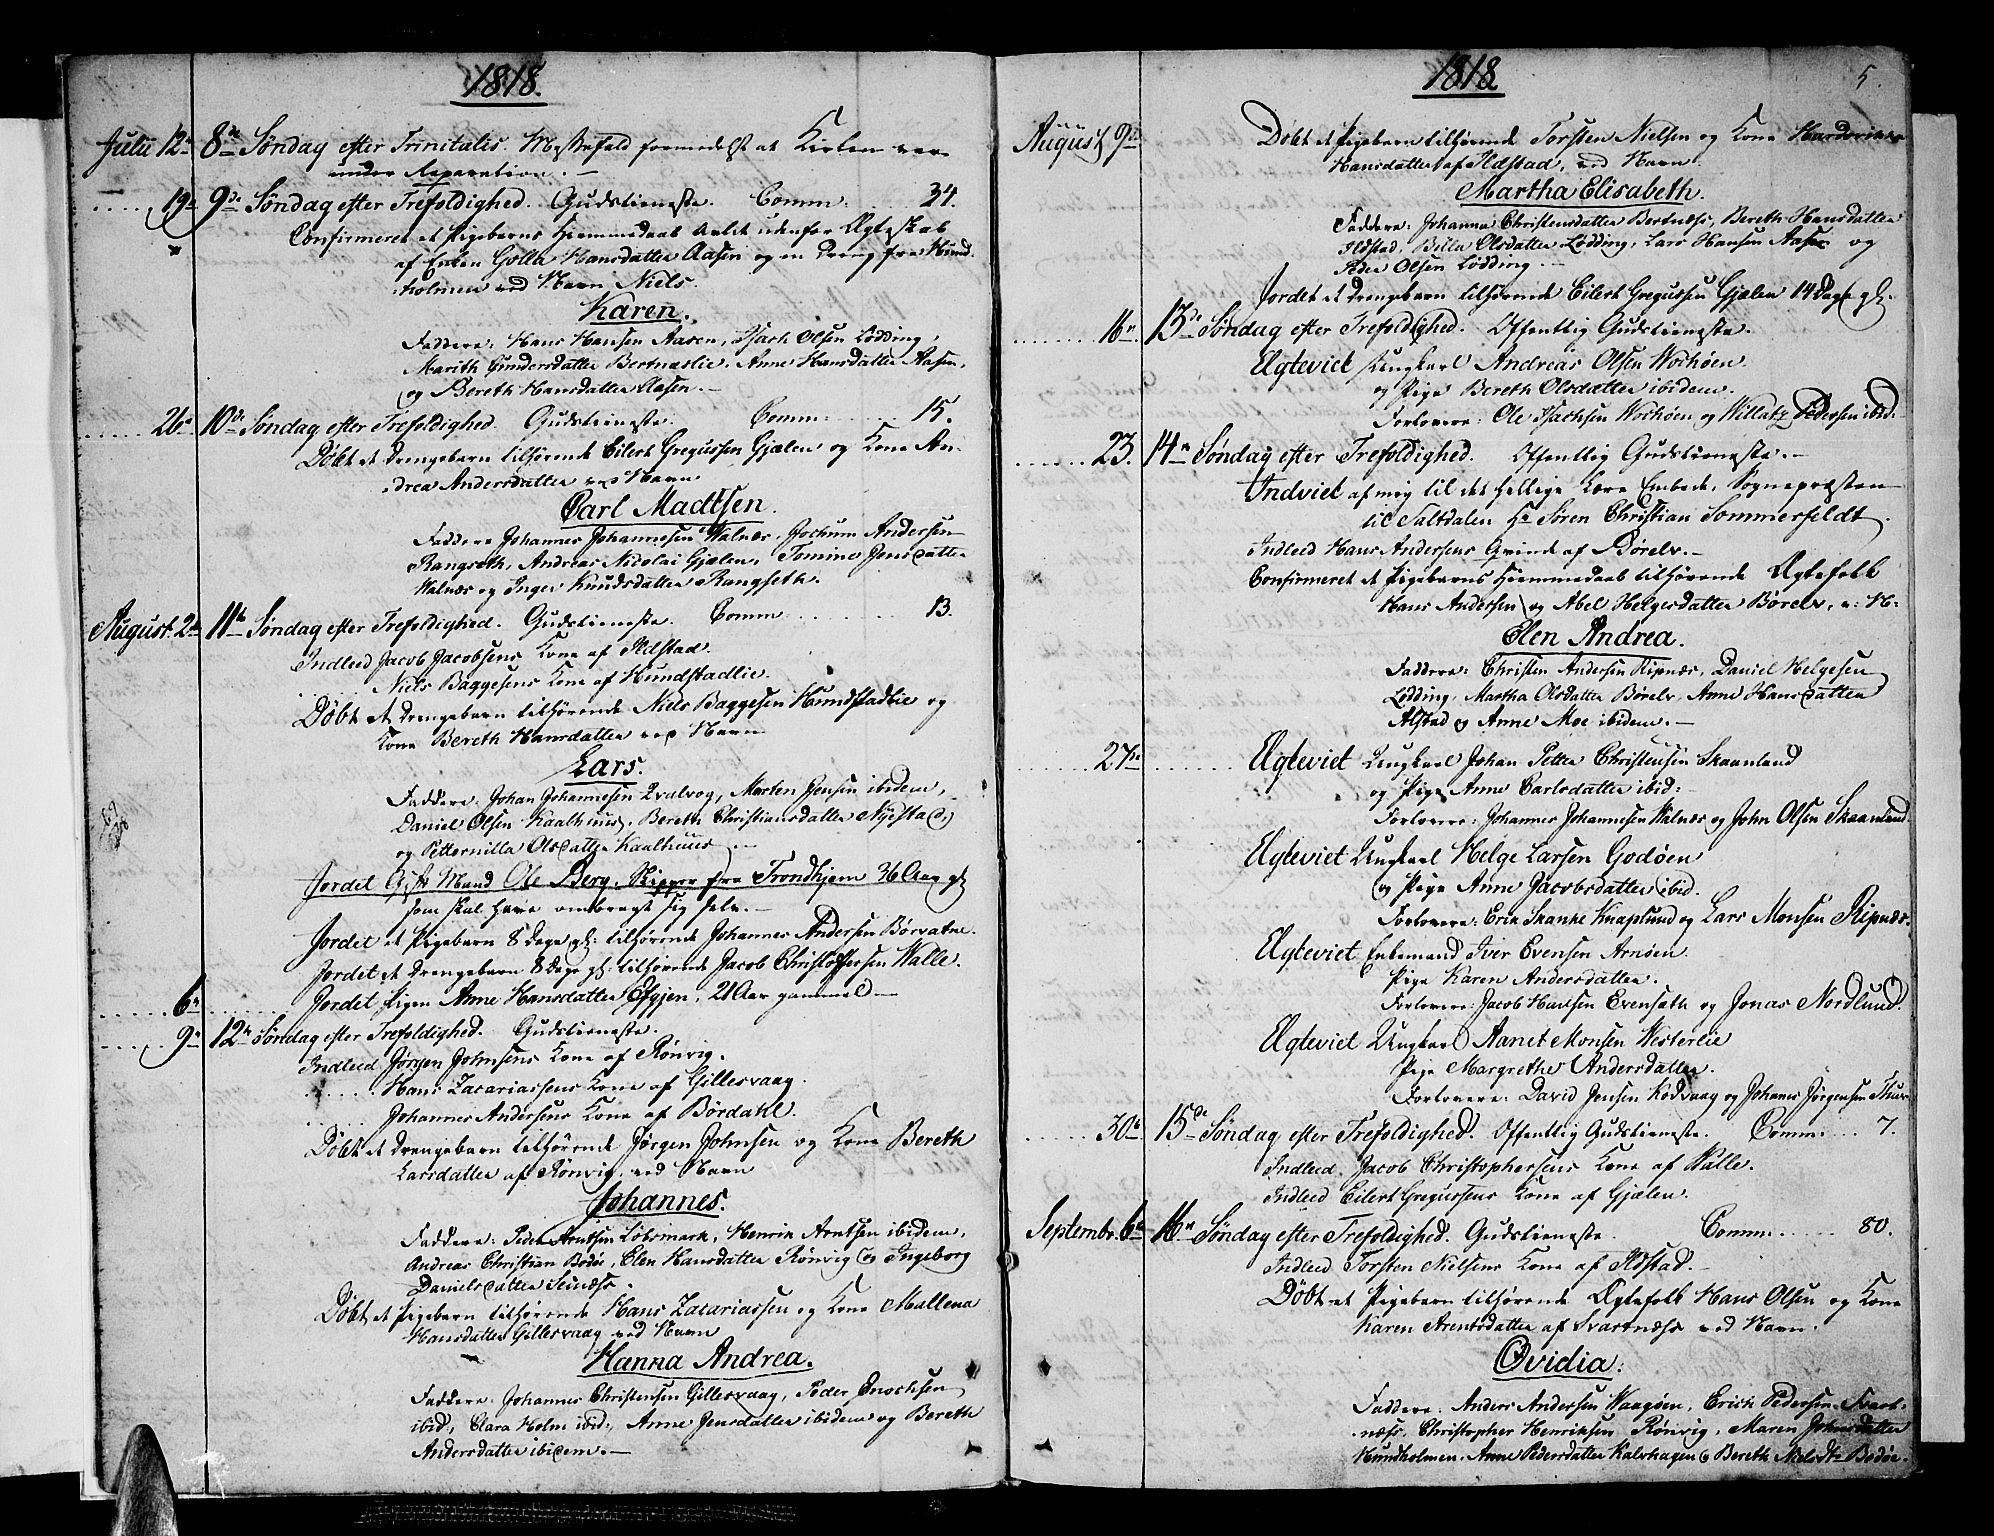 1818.
Julii 12te 8de Søndag efter Trinitatis. Messefald formedelst at Kirken var
under Reparation.
19de 9de Søndag efter Trefoldighed. Gudstieneste. Comm: 34.
Confirmeret et Pigebarns Hiemmedaab avlet udenfor Ægteskab
af Enken Golla Hansdatter Aasen og en Dreng fra Hund-
holmen ved Navn Niels.
Karen.
Faddere: Hans Hansen Aasen, Isach Olsen Lødding,
Marith Gundersdatter Bertnæslie, Anne Hansdatter Aasen,
og Bereth Hansdatter Aasen.
26de 10de Søndag efter Trefoldighed. Gudstieneste. Comm: 15.
Døbt et Drengebarn tilhørende Eilert Gregussen Gjælen og Kone An-
drea Andersdatter ved Navn
Carl Madtsen.
Faddere Johannes Johannesen Walnæs, Jochum Andersen
Rangseth, Andreas Nicolai Gjælen, Tomine Jensdatter
Walnæs og Inger Knudsdatter Rangseth.
August. 2den 11te Søndag efter Trefoldighed. Gudstieneste. Comm 13.
Indleed Jacob Jacobsens Kone af Ildstad.
Niels Baggesens Kone af Hundstadlie.
Døbt et Drengebarn tilhørende Niels Baggesen Hundstadlie og
Kone Bereth Hansdatter ved Navn
Lars.
Faddere: Johan Johannesen Qvalvog, Morten Jensen ibidem,
Daniel Olsen Kaalhuus, Bereth Christiansdatter Nyestad,
og Petternilla Olsdatter Kaalhuus
Jordet Gift Mand Ole Berg, Skipper fra Trondhjem 36 Aar gl
som skal have ombragt sig selv.
Jordet et Pigebarn 8 Dage gl: tilhørende Johannes Andersen Børvatne.
Jordet et Drengebarn 8 Dage gl: tilhørende Jacob Christophersen Walle.
6te Jordet Pigen Anne Hansdatter Efjen, 21 Aar gammel
9de 12te Søndag efter Trefoldighed. Gudstieneste.
Indleed Jørgen Johnsens Kone af Rønvig.
Hans Zacariassens Kone af Gillesvaag.
Johannes Andersens Kone af Børdahl.
Døbt et Drengebarn tilhørende Jørgen Johnsen og Kone Bereth
Larsdatter af Rønvig, ved Navn
Johannes.
Faddere: Peder Arntsen Løbsmark, Henrik Arntsen ibidem,
Andreas Christian Bodøe, Elen Hansdatter Rønvig og Ingeborg
Danielsdatter Seinæss.
Døbt et Pigebarn tilhørende Hans Zacariassen og Kone Mallena
Hansdatter Gillesvaag ved Navn
Hanna Andrea.
Faddere: Johannes Christensen Gillesvaag, Peder Enochsen
ibid, Clara Holm ibid:, Anne Jensdatter ibidem og Bereth
Andersdatter ibidem.
1818
5.
August 9de Døbt et Pigebarn tilhørende Torsten Nielsen og Kone
Hansdatter af Ildstad, ved Navn.
Martha Elisabeth.
Faddere: Johanna Christensdatter Bertnæss, Bereth Hansdatter
Ildstad, Billa Olsdatter Lødding, Lars Hansen Aasen og
Peder Olsen Lødding.
Jordet et Drengebarn tilhørende Eilert Gregussen Gjælen 14 Dage gl.
16de 13de Søndag efter Trefoldighed. Offentlig Gudstieneste.
Ægteviet Ungkarl Andreas Olsen Wochøen
og Pige Bereth Olsdatter ibidem.
Forlovere: Ole Isachsen Wochøen og Willatz Pedersen ibid:
23. 14de Søndag efter Trefoldighed. Offentlig Gudstieneste.
Indviet af mig til det hellige Lære Embede, Sognepræsten
til Saltdalen Hr Søren Christian Sommerfeldt.
Indleed Hans Andersens Qvinde af Børelv.
Confirmeret et Pigebarns Hiemmedaab tilhørende Ægtefolk
Hans Andersen og Abel Helgesdatter Børelv, v: N:
Elen Andrea.
Faddere: Christen Andersen Ripnæs, Daniel Helgesen
Lødding, Martha Olsdatter Børelv, Anne Hansdatter
Alstad og Anne Moe ibidem.
27de Ægteviet Ungkarl Johan Petter Christensen Skaanland
og Pige Anne Carlsdatter ibid:
Forlovere: Johannes Johannesen Walnæs og John Olsen Skaanland.
Ægteviet Ungkarl Helge Larsen Godøen
og Pige Anne Jacobsdatter ibid.
Forlovere: Erik Skanke Knaplund og Lars Monsen Ripnæs.
Ægteviet Enkemand Iver Evensen Arnøen
Pige Karen Andersdatter.
Forlovere: Jacob Hansen Evensæth og Jonas Nordlund.
Ægteviet Ungkarl Aanet Monsen Westerlie
Pige Margrethe Andersdatter.
Forlovere: David Jensen Kodvaag og Johannes Jørgensen
30te 15de Søndag efter Trefoldighed. Offentlig Gudstieneste. Comm: 7.
Indleed Jacob Christophersens Kone af Valle.
Indleed Eilert Gregussens Kone af Gjælen.
Septembr. 6te 16de Søndag efter Trefoldighed. Gudstieneste. Comm: 80.
Indleed Torsten Nielsens Kone af Ildstad.
Døbt et Pigebarn tilhørende Ægtefolk Hans Olsen og Kone
Karen Arentsdatter af Svartnæss ved Navn.
Ovidia.
Faddere: Anders Andersen Waagøen, Erich Pedersen Svart-
næss, Christopher Henriksen Rønvig, Maren Johnsdatter
Hundholmen, Anne Pedersdatter Kalvhagen & Bereth Nielsdtr Bodøe.